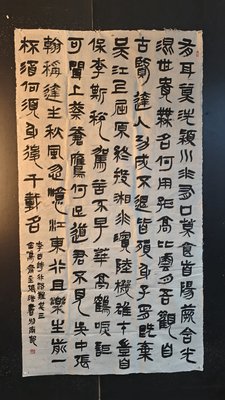 有耳莫洗潁川水有口莫食首陽蕨含光
混世貴無名何用孤高比雲月吾觀自
古賢達人功成不退皆殞身子胥既棄
吳江上屈原終投湘水濱陸機雄才豈自
保李斯稅駕苦不早華亭鶴唳詎
可聞上蔡蒼鷹何足道君不見吳中張
翰稱達生秋風忽憶江東行且樂生前一
杯酒何須身後千載名
李白詩行路難其三